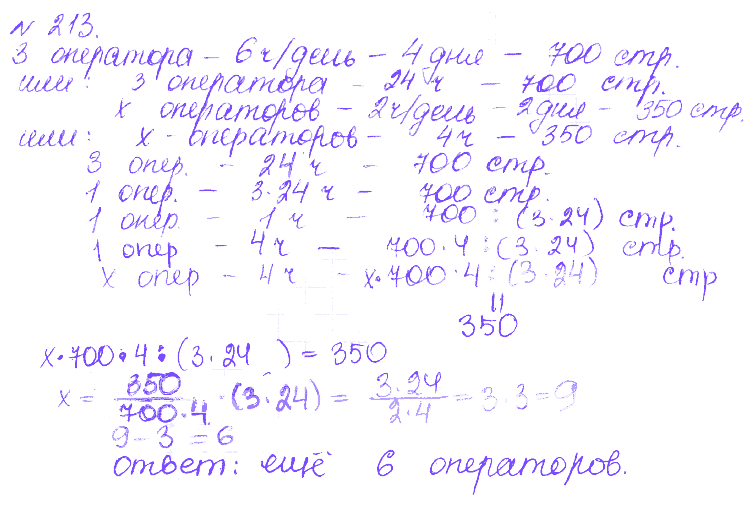 № 213.
3 оператора – 6 ч/день – 4 дня – 700 стр.
или: 3 оператора – 24 ч – 700 стр.
х операторов – 2 ч/день – 2 дня – 350 стр.
или: х - операторов – 4 ч – 350 стр.
3 опер. – 24 ч – 700 стр.
1 опер. – 3·24 ч – 700 стр.
1 опер – 1 ч – 700 : (3·24) стр.
1 опер – 4 ч – 700·4 : (3·24) стр.
х опер – 4 ч – х·700·4 : (3·24) стр
||
350
х·700·4 : (3·24 ) = 350
х = 350/700·4 · (3·24) = 3·24/2·4 = 3·3 = 9
9 – 3 = 6
ответ: ещё 6 операторов.